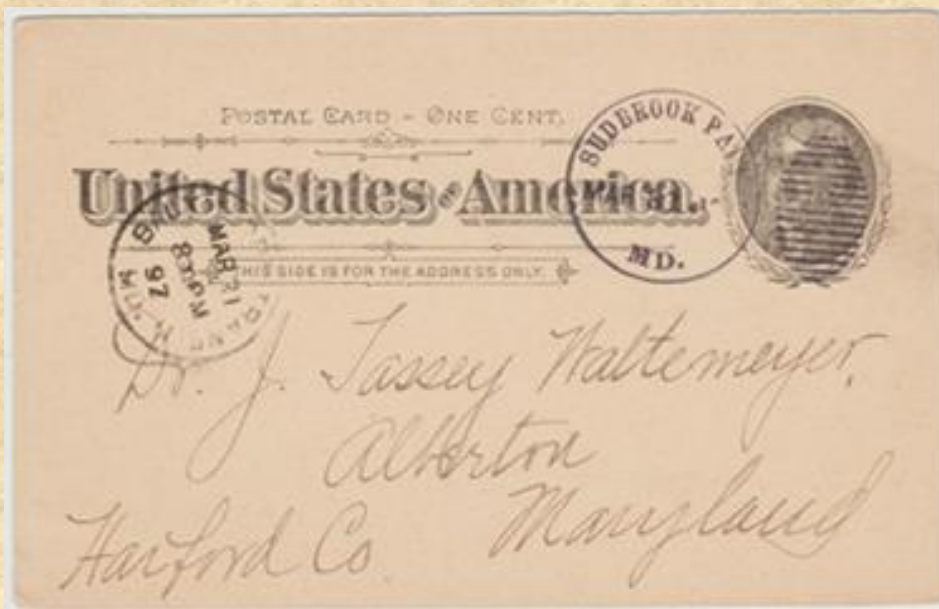 POSTAL CARD - ONE CENT.
United States of America.
THIS SIDE IS FOR THE ADDRESS ONLY.
SUDBROOK PAR
MD.
BALT
MAR 31
8 PM
97
TRANSIT
Dr. J. Tassey Waltemeyer,
Alberton
Maryland
Harford Co